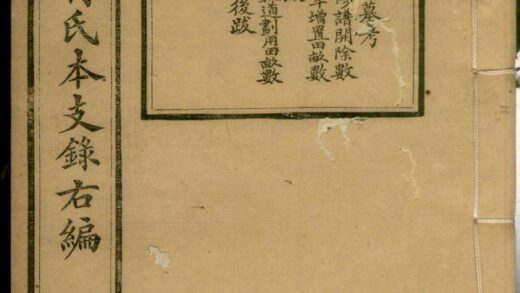 墓考
修譜開除數
年增置田畝數
道劃用田畝數
後跋
氏本支錄右編